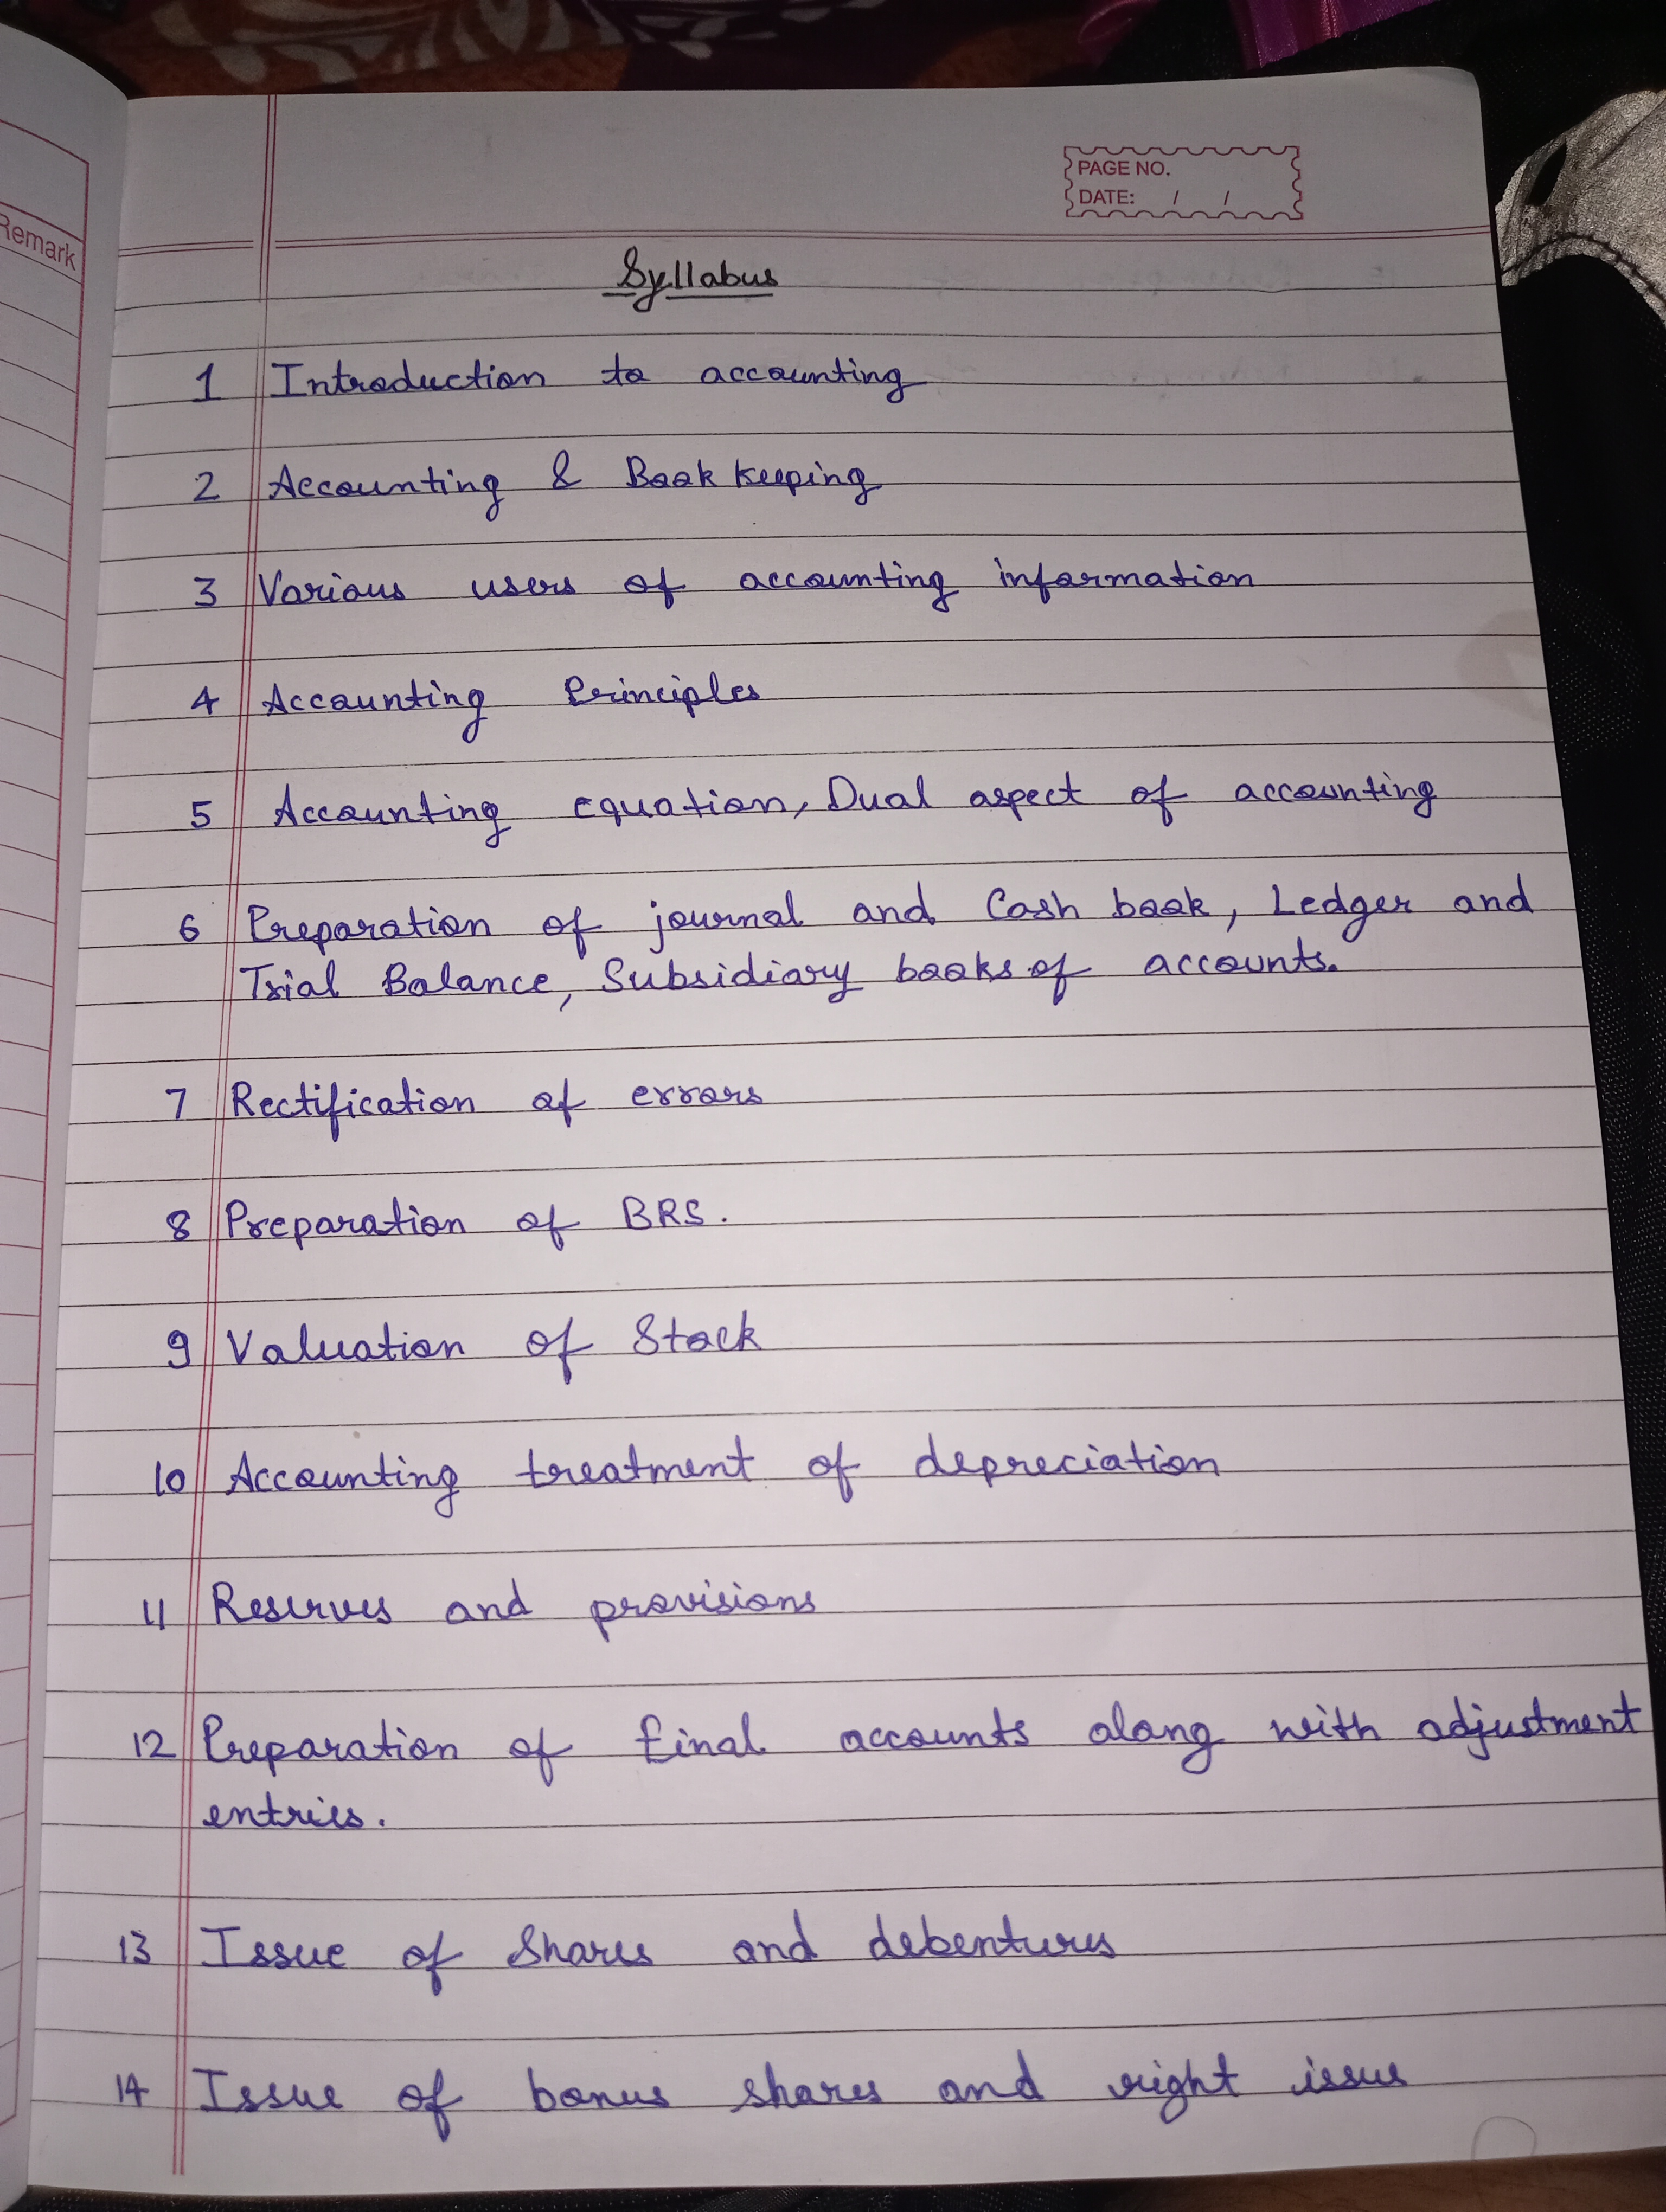 Remark
PAGE NO.
DATE: / /
Syllabus
1 Introduction to accounting
2 Accounting & Book keeping
3 Various users of accounting information
4 Accounting Principles
5 Accounting equation, Dual aspect of accounting
6 Preparation of journal and Cash book, Ledger and
Trial Balance, Subsidiary books of accounts.
7 Rectification of errors
8 Preparation of BRS.
9 Valuation of Stock
10 Accounting treatment of depreciation
11 Reserves and provisions
12 Preparation of final accounts along with adjustment
entries.
13 Issue of Shares and debentures
14 Issue of bonus shares and right issue